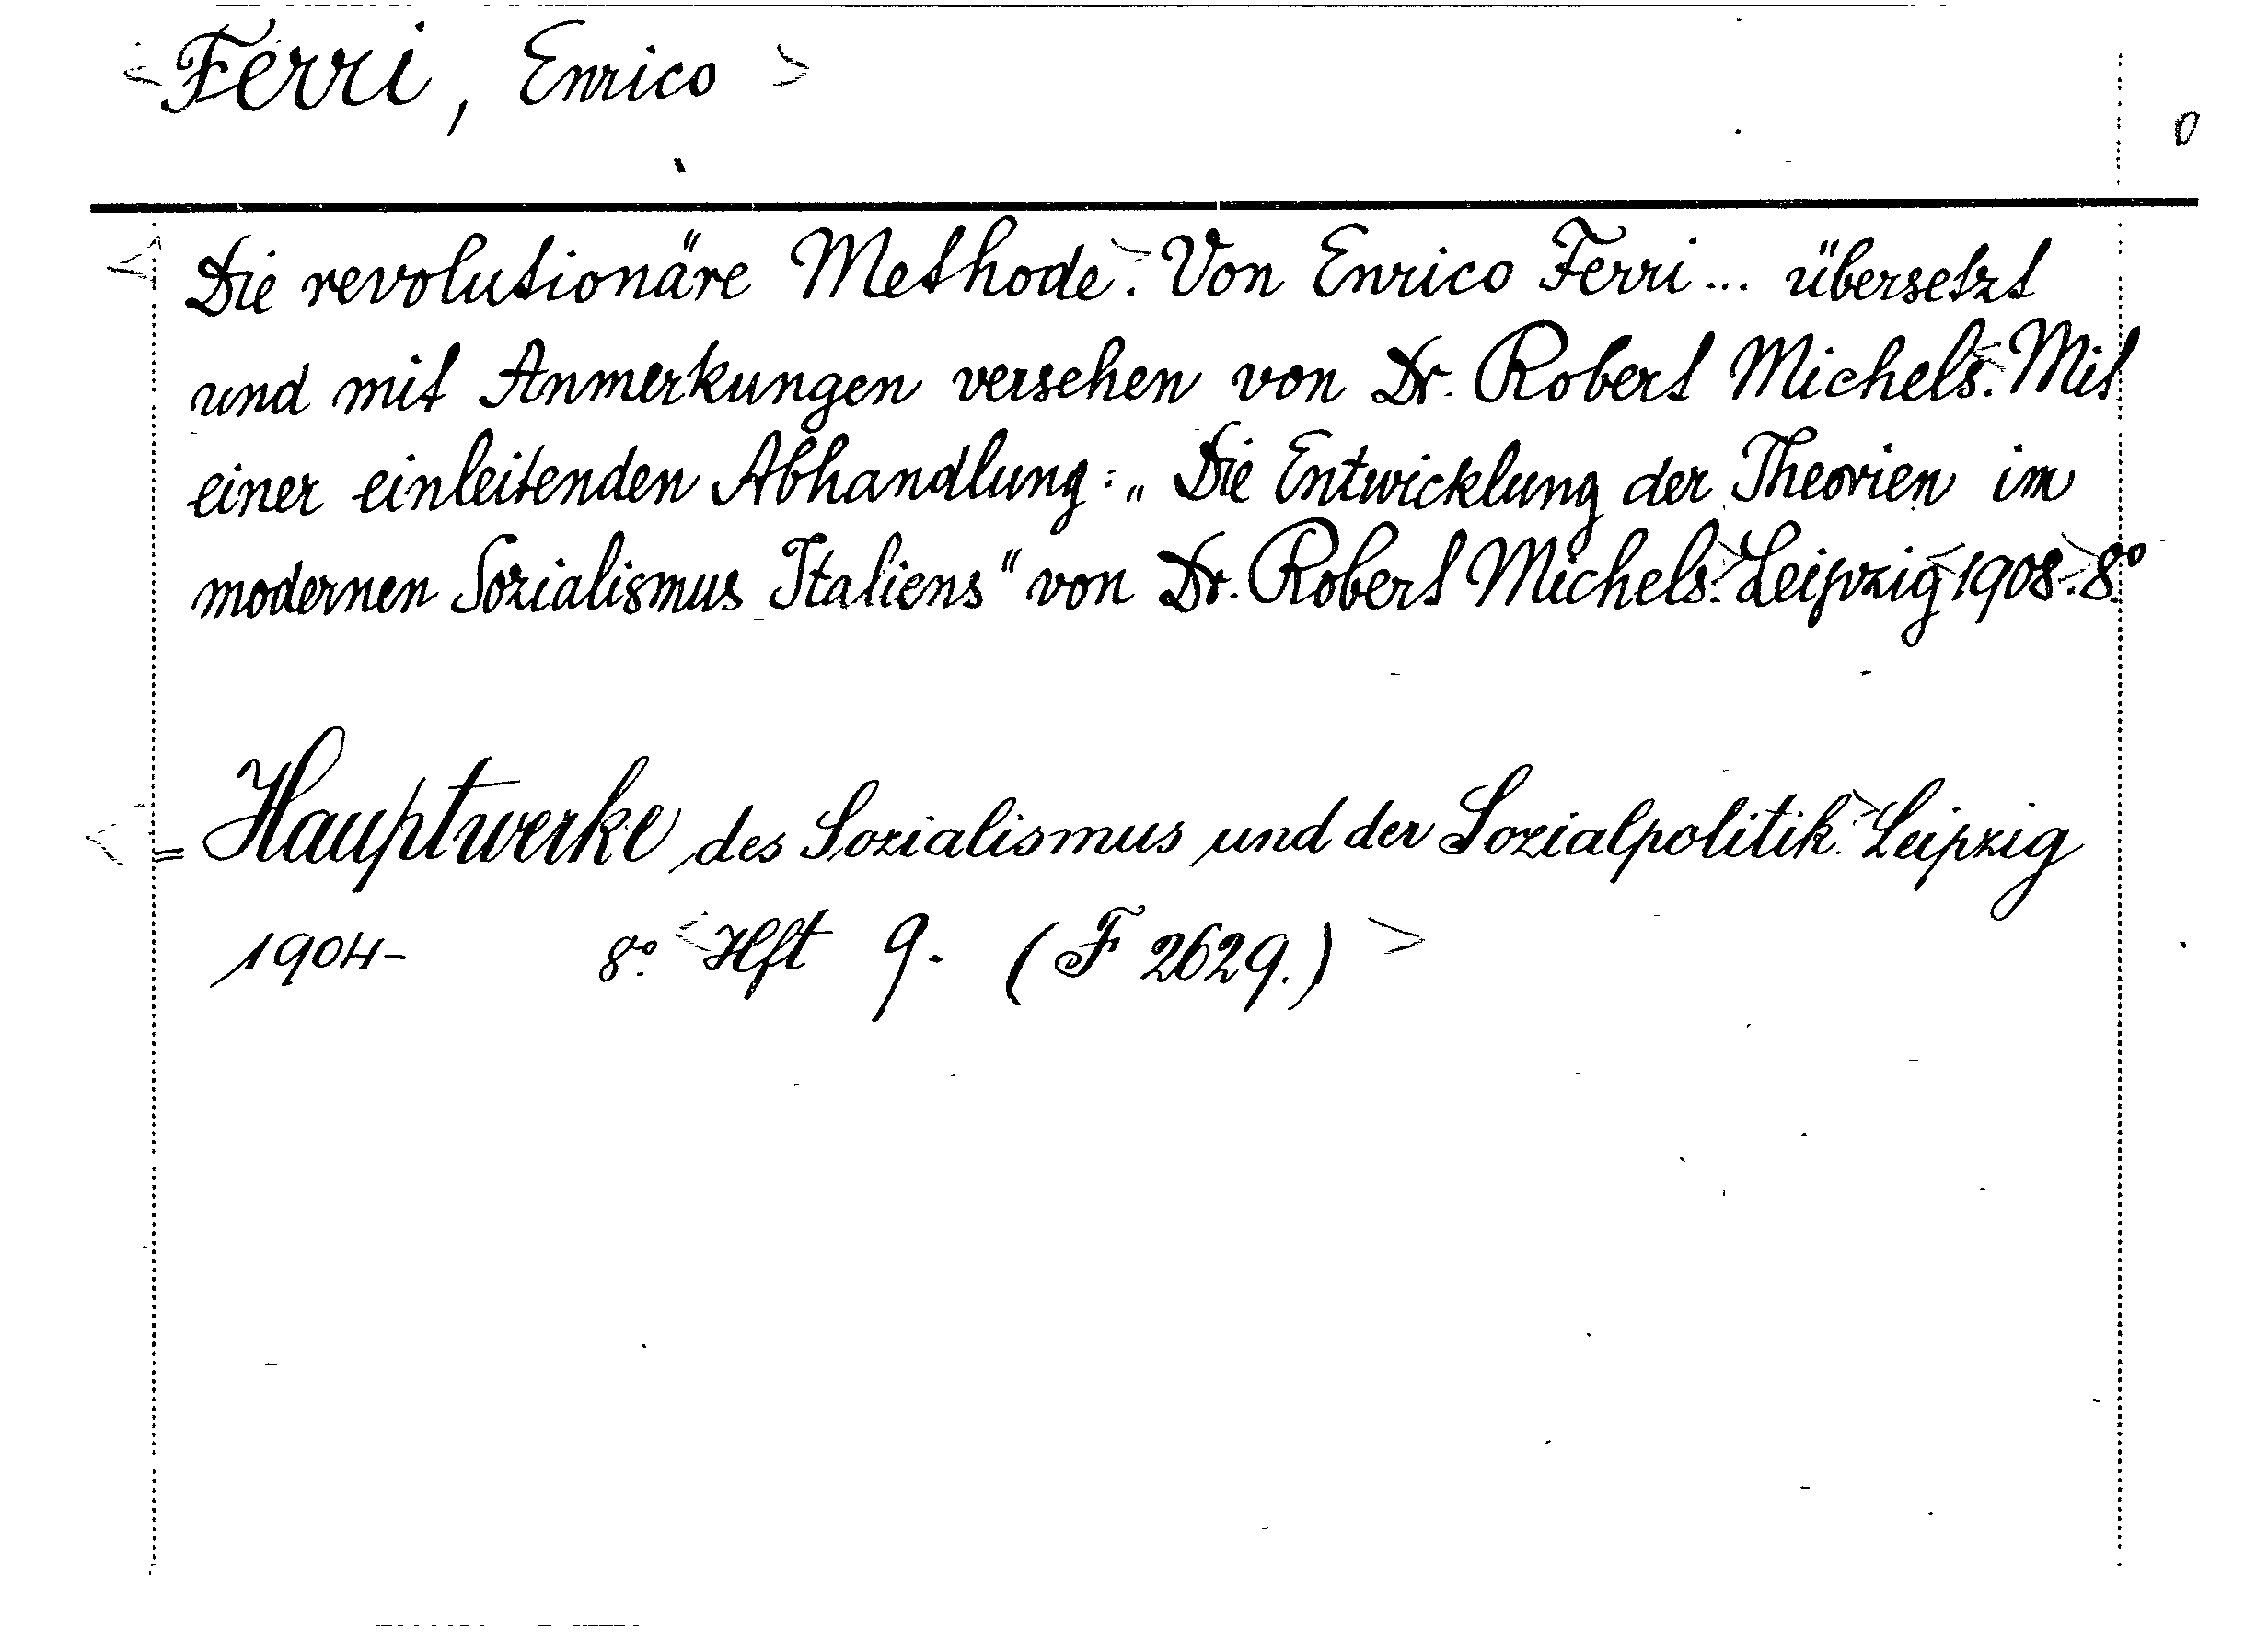 <Ferri, Enrico>
0
<Die revolutionäre Methode>. Von Enrico Ferri... übersetzt
und mit Anmerkungen versehen von Dr. Robert Michels.<Mit
einer einleitenden Abhandlung: „Die Entwicklung der Theorien im
modernen Sozialismus Italiens“ von Dr. Robert Michels.>Leipzig<1908.>8°.
<= Hauptwerke des Sozialismus und der Sozialpolitik.>Leipzig
1904- 8°.<Hft 9. (F 2629.)>